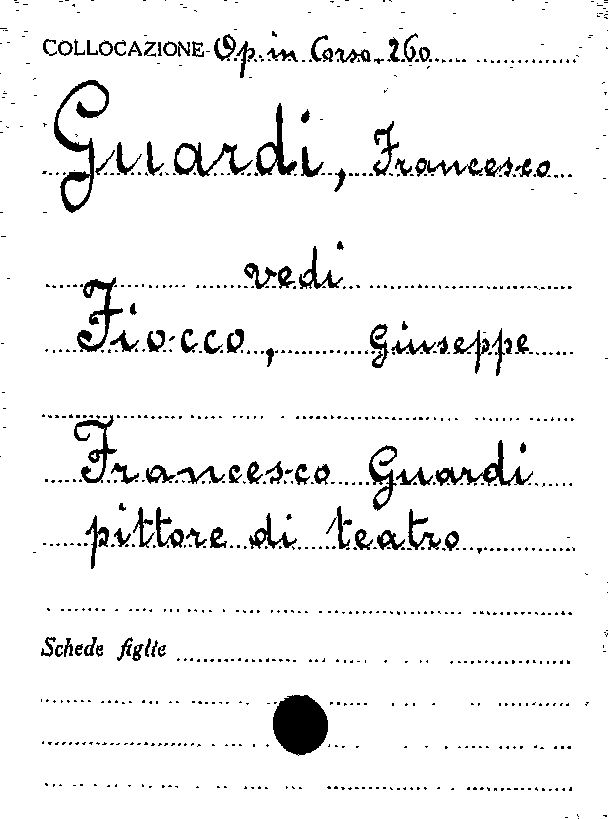 COLLOCAZIONE Op. in Corso. 260
Guardi, Francesco
vedi
Fiocco, Giuseppe
Francesco Guardi
pittore di teatro.
Schede figlie